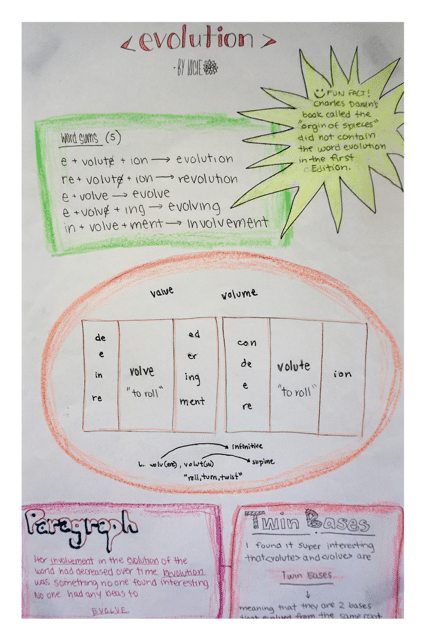 <evolution>
- BY LUCIE
☺ FUN FACT!
Charles Darwin's
book called the
"orgin of spieces"
did not contain
the word evolution
in the first
Edition.
Word sums (5)
e + volute + ion → evolution
re + volute + ion → revolution
e + volve → evolve
e + volve + ing → evolving
in + volve + ment → involvement
valve volume
de
e
in
re
volve
"to roll"
ed
er
ing
ment
con
de
e
re
volute
"to roll"
ion
infinitive
supine
"roll, turn, twist"
Paragraph
Her involvement in the evolution of the
world had decreased over time. Revolution
was something no one found interesting
No one had any ideas to
EVOLVE
Twin Bases
I found it super interesting
that <volute> and <volve> are
Twin Bases
meaning that they are 2 bases
that evolved from the same root